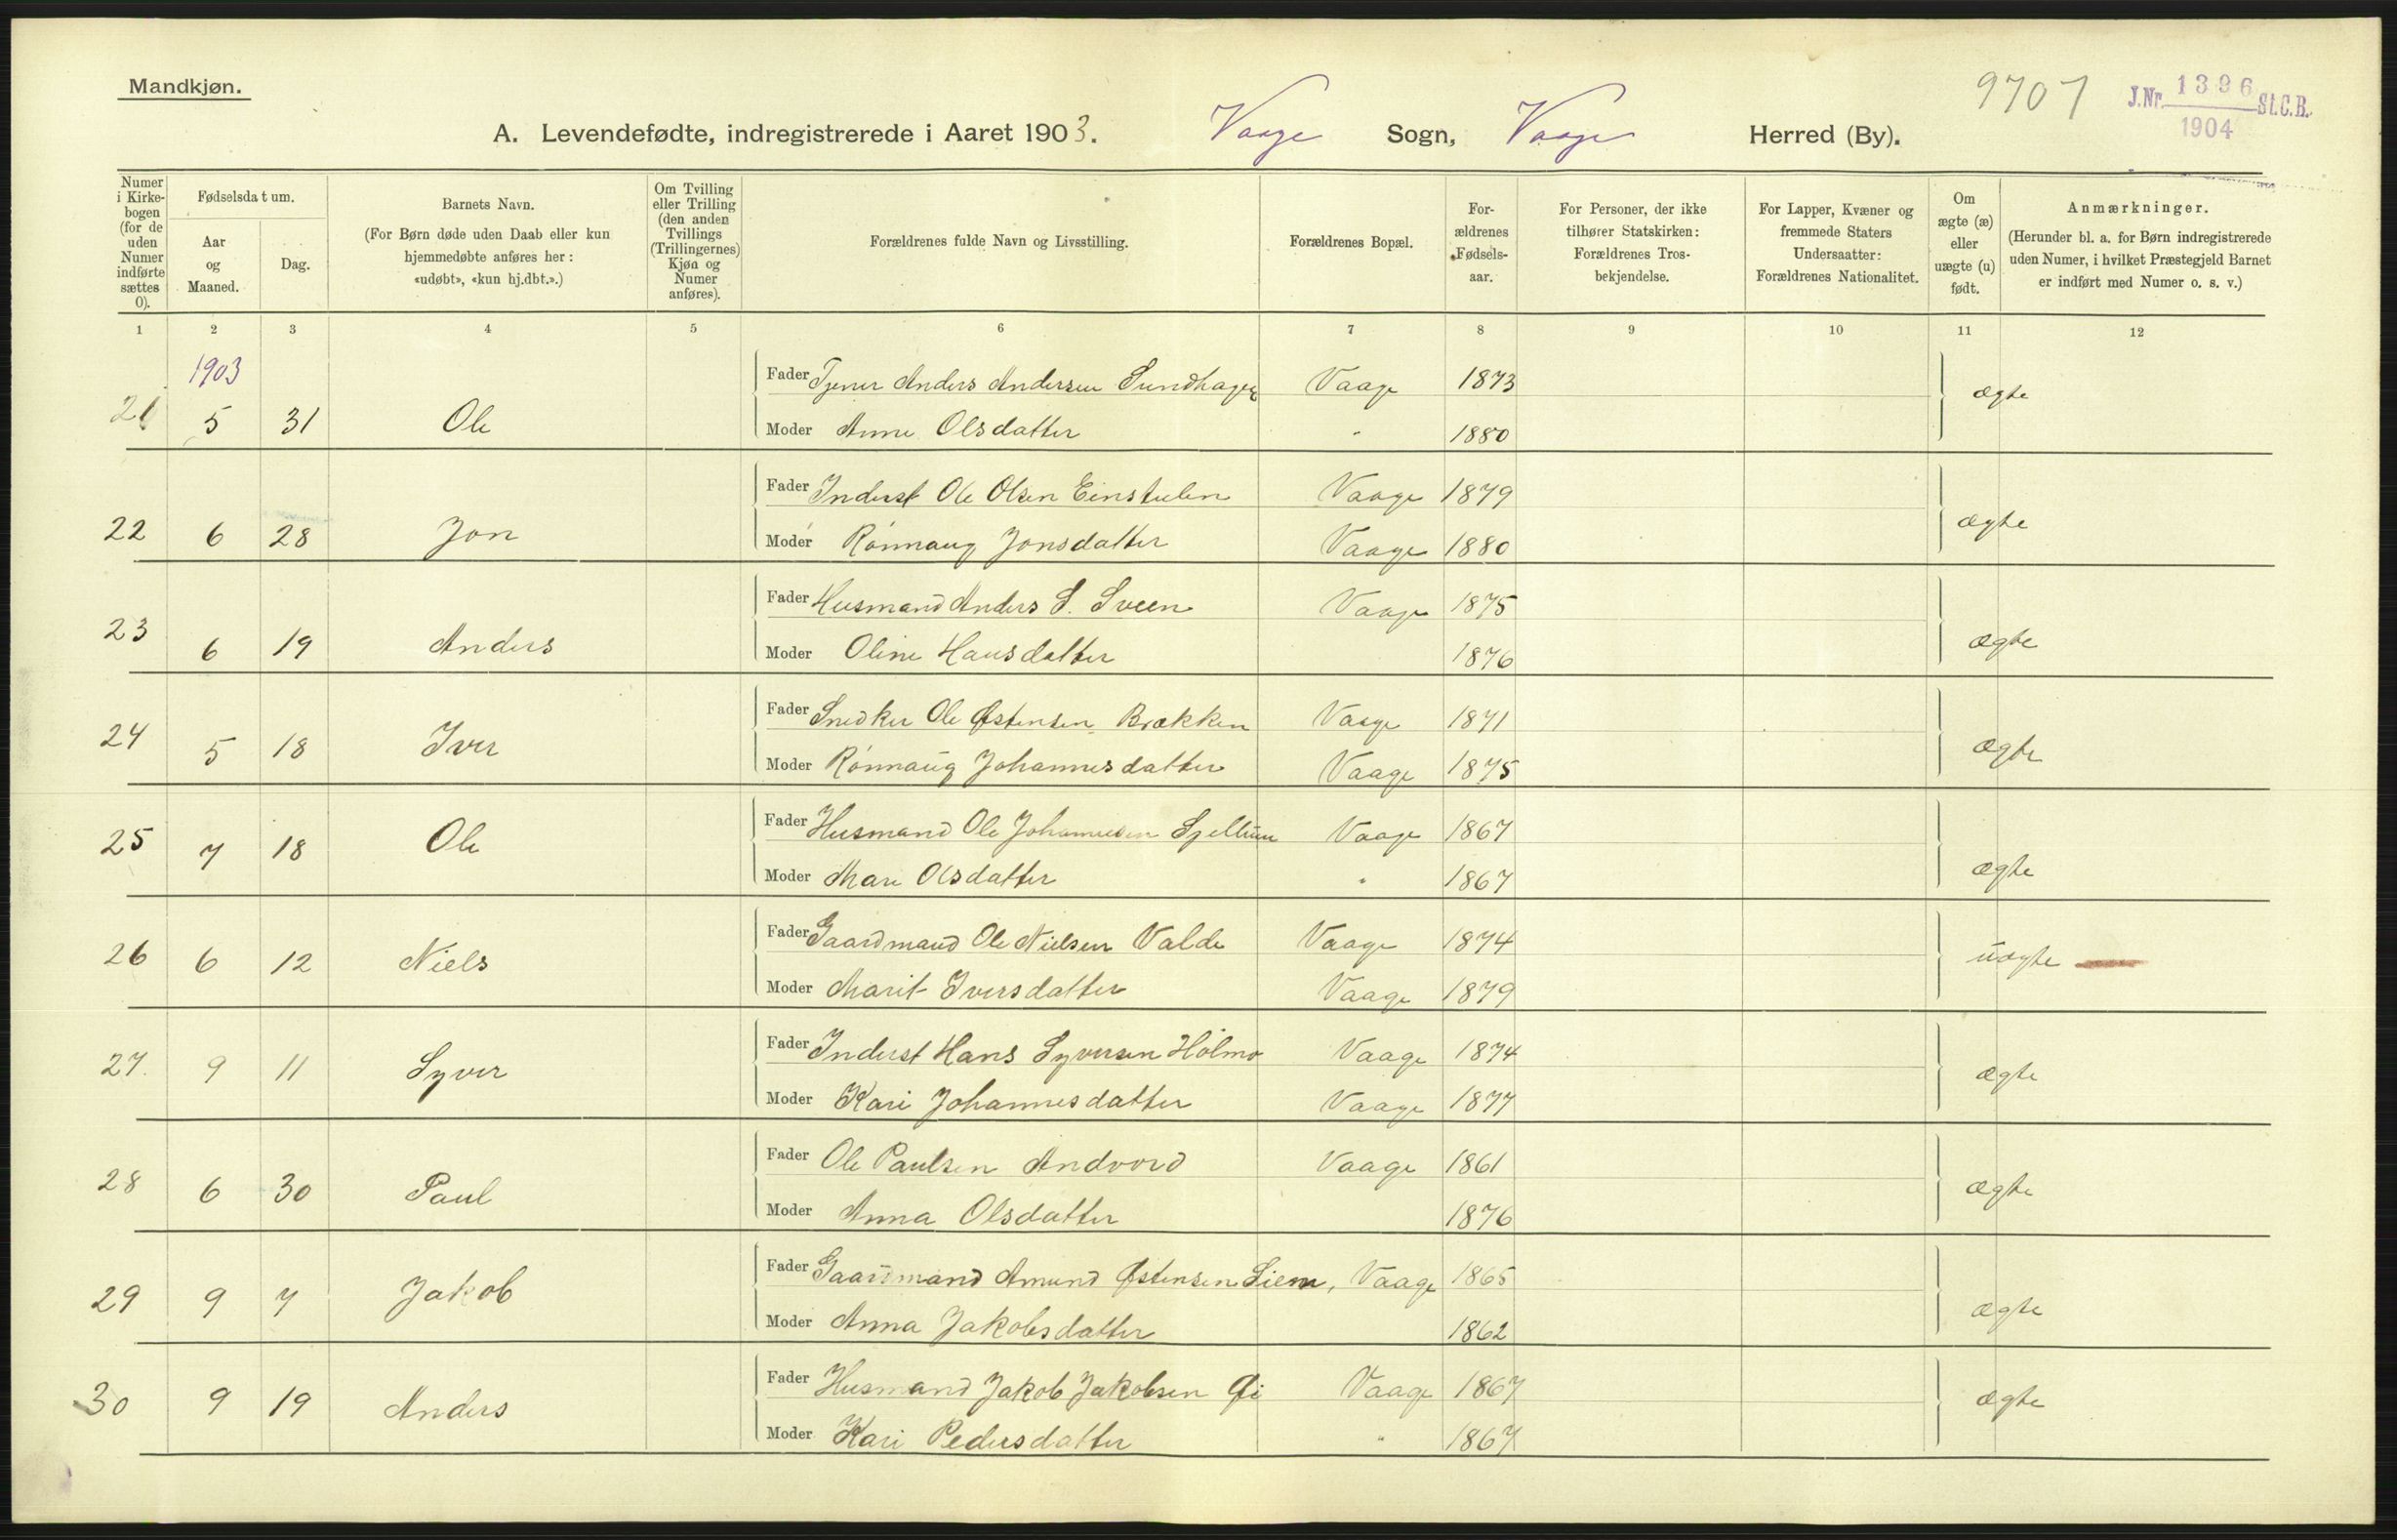 Mandkjøn.
9707
J.Nr. 1396 St.C.B.
1904
A. Levendefødte, indregistrerede i Aaret 1903. Vaage Sogn, Vaage Herred (By).
Numer i Kirkebogen (for de uden Numer indførte sættes 0).
Fødselsdatum.
Aar og Maaned.
Dag.
Barnets Navn.
(For Børn døde uden Daab eller kun hjemmedøbte anføres her: «udøbt», «kun hj.dbt.».)
Om Tvilling eller Trilling (den anden Tvillings (Trillingernes) Kjøn og Numer anføres).
Forældrenes fulde Navn og Livsstilling.
Forældrenes Bopæl.
Forældrenes Fødselsaar.
For Personer, der ikke tilhører Statskirken: Forældrenes Trosbekjendelse.
For Lapper, Kvæner og fremmede Staters Undersaatter: Forældrenes Nationalitet.
Om ægte (æ) eller uægte (u) født.
Anmærkninger.
(Herunder bl. a. for Børn indregistrerede uden Numer, i hvilket Præstegjeld Barnet er indført med Numer o. s. v.)
1 2 3 4 5 6 7 8 9 10 11 12
1903
Fader Tjener Anders Andersen Sundhagen Vaage 1873
21 5 31 Ole ægte
Moder Anne Olsdatter " 1880
Fader Inderst Ole Olsen Einstulen Vaage 1879
22 6 28 Jon ægte
Moder Rönnaug Jonsdatter Vaage 1880
Fader Husmand Anders S. Sveen Vaage 1875
23 6 19 Anders ægte
Moder Oline Hansdatter 1876
Fader Snedker Ole Østensen Brækken Vaage 1871
24 5 18 Iver ægte
Moder Rönnaug Johannesdatter Vaage 1875
Fader Husmand Ole Johannesen Sjellum Vaage 1867
25 7 18 Ole ægte
Moder Mari Olsdatter " 1867
Fader Gaardmand Ole Nielsen Valde Vaage 1874
26 6 12 Niels uægte
Moder Marit Iversdatter Vaage 1879
Fader Inderst Hans Syversen Holmo Vaage 1874
27. 9 11 Syver ægte
Moder Kari Johannesdatter Vaage 1877
Fader Ole Paulsen Andvord Vaage 1861
28 6 30 Paul ægte
Moder Anna Olsdatter 1876
Fader Gaardmand Amund Østensen Siem, Vaage 1865
29 9 7 Jakob ægte
Moder Anna Jakobsdatter 1862
Fader Husmand Jakob Jakobsen Øi Vaage 1867
30 9 19 Anders ægte
Moder Kari Pedersdatter " 1867